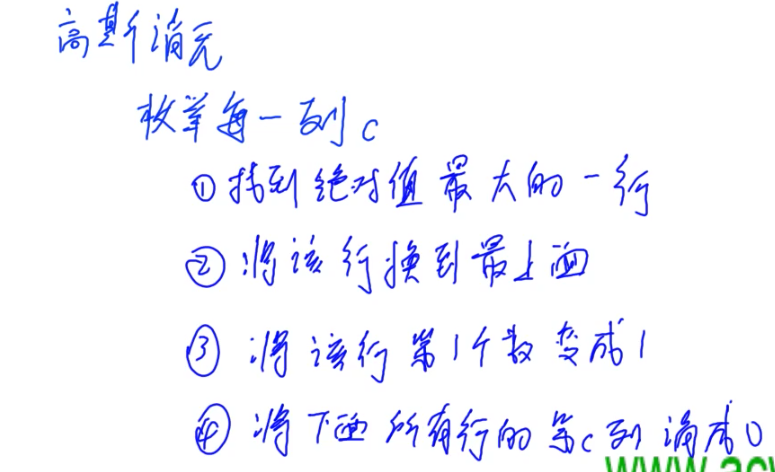 高斯消元
枚举每一列c
①找到绝对值最大的一行
②将该行换到最上面
③将该行第1个数变成1
④将下面所有行的第c列消成0